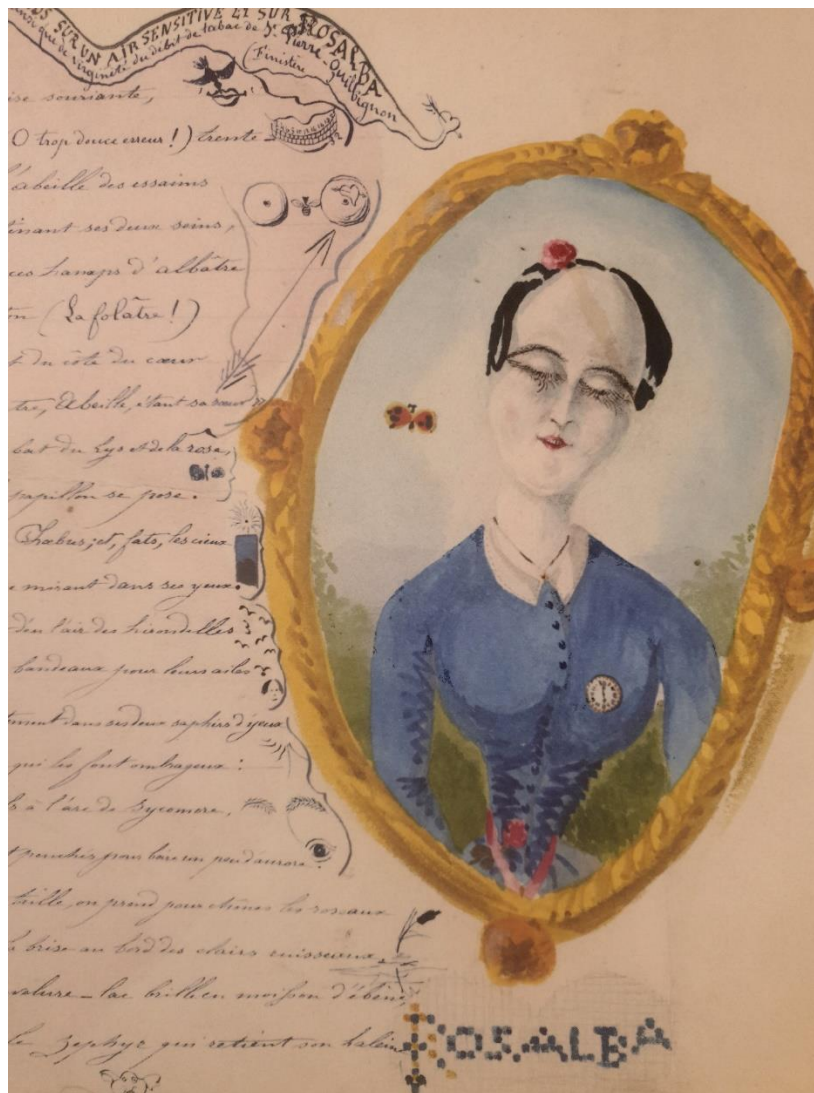 SUR UN AIR SENSITIVE ET SUR ROSALBA
que de virginité du débit de tabac de St Pierre-Quilbignon
(Finistère
souriante,
O trop douce erreur!) trente
l'abeille des essaims
ses deux seins,
ces hanaps d'albâtre
(La folâtre!)
du côté du cœur
Abeille, étant sa sœur
du Lys et de la rose,
papillon se pose.
Phœbus; et, fats, les cieux
mirant dans ses yeux.
l'air des hirondelles
bandeaux pour leurs ailes
dans ses deux saphirs d'yeux
qui les font ombrageux:
à l'arc de Sycomore,
penchés pour boire un peu d'aurore.
taille, on prend pour chênes les roseaux
brise au bord des clairs ruisseaux
lac brillen moisson d'ébène,
zéphyr qui retient son haleine
ROSALBA